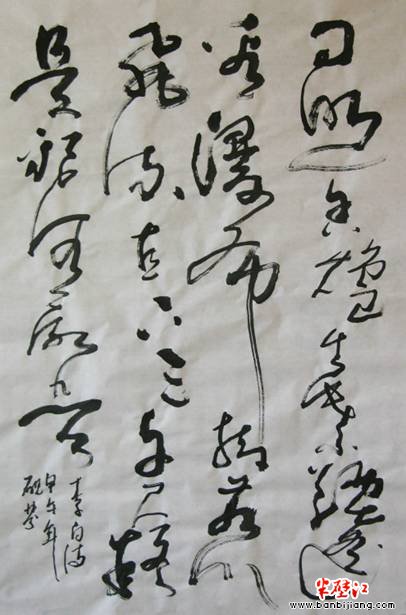 日照香炉生紫烟遥
看瀑布挂前川
飞流直下三千尺疑
是银河落九天
李白诗
甲午年
半壁江
www.banbijiang.com